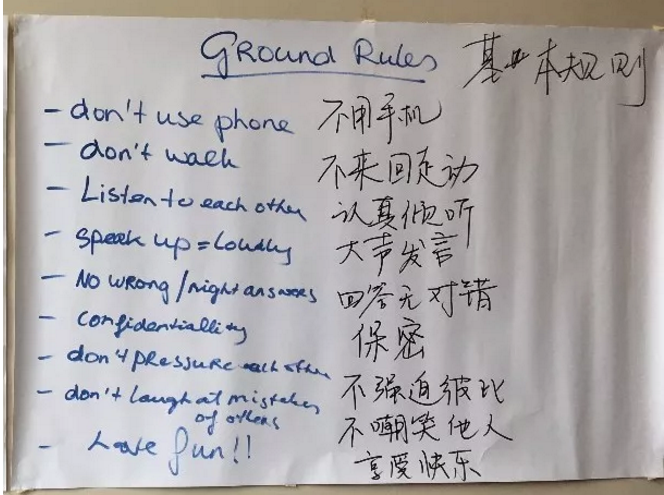 Ground Rules 基本规则
- don't use phone 不用手机
- don't walk 不来回走动
- Listen to each other 认真倾听
- speak up = Loudly 大声发言
- No wrong / right answers 回答无对错
- confidentiallity 保密
- don't pressure each other 不强迫彼此
- don't laugh at mistakes
of others 不嘲笑他人
- Have fun!! 享受快乐